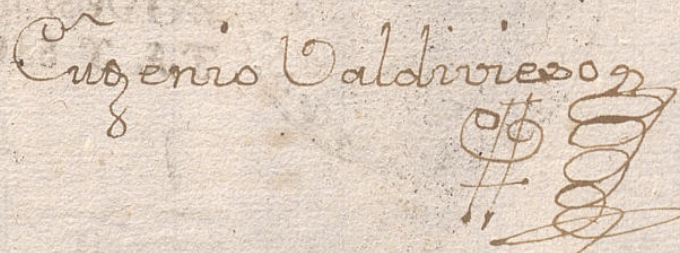 Eugenio Valdivieso